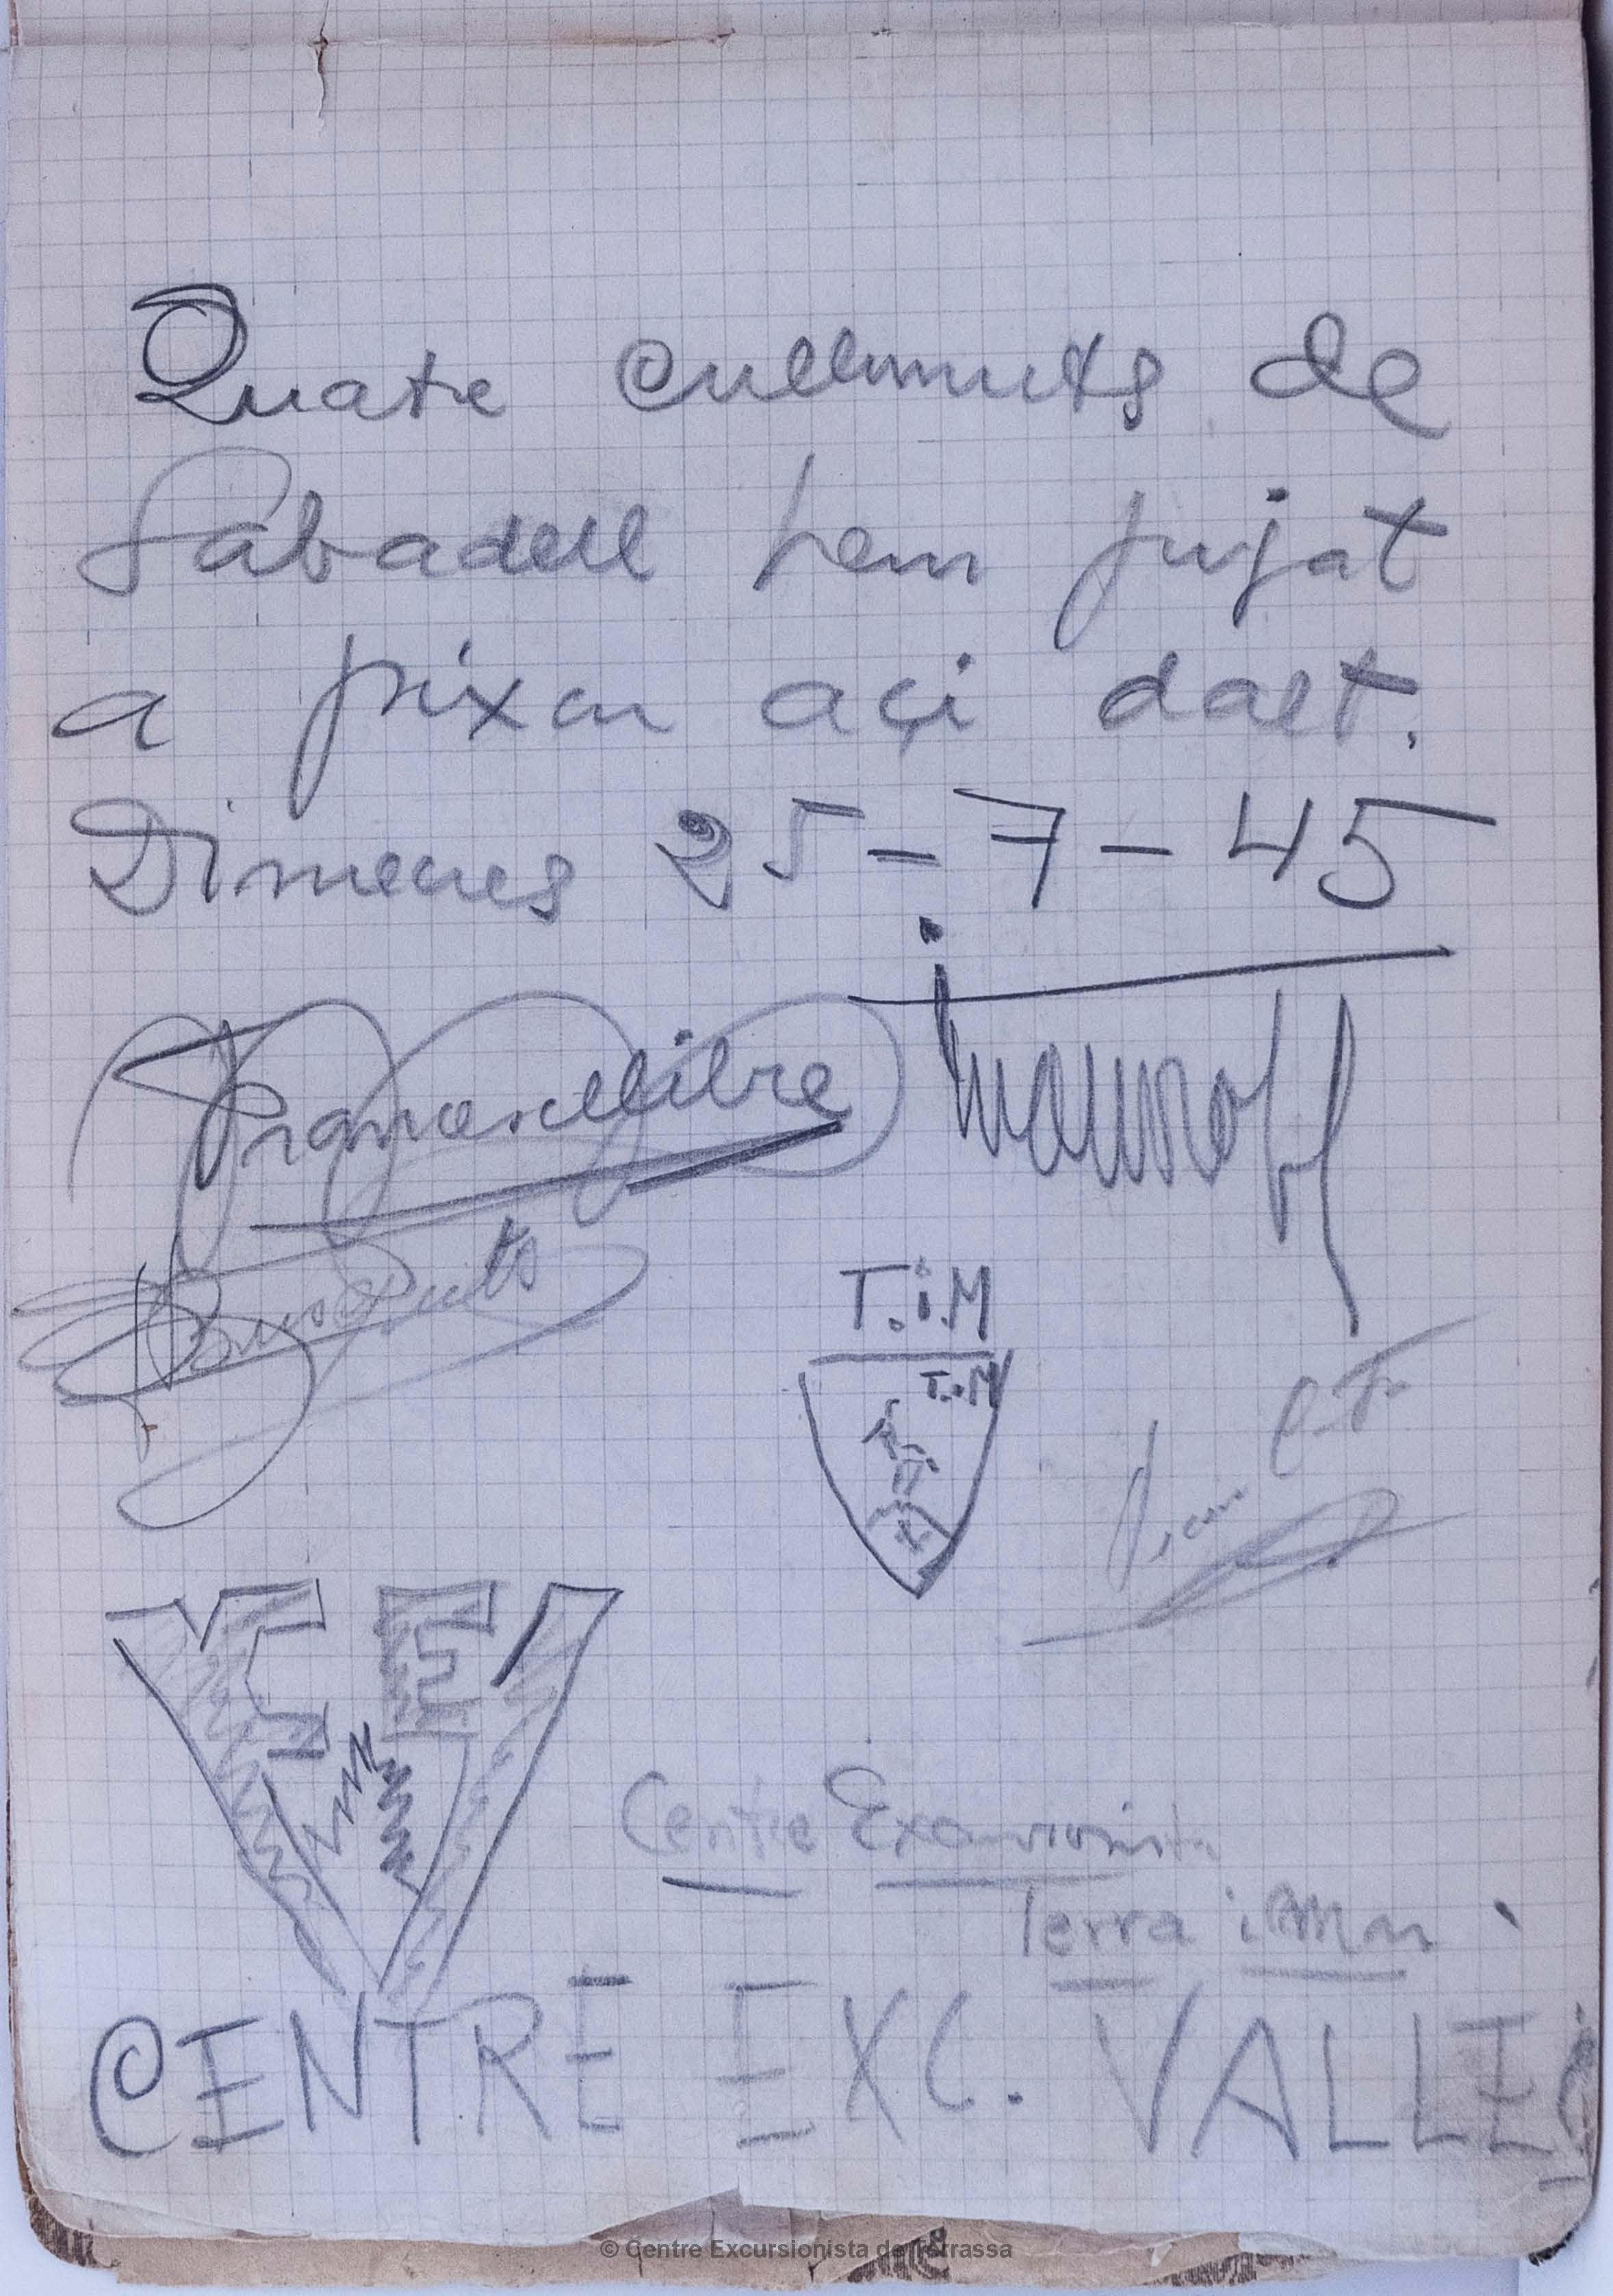 Quatre cullunuts de
Sabadell hem pujat
a pixar açi dalt.
Dimecres 25-7-45
T.i.M
T.i.M
C E
Centre Excursionista
Terra i Mar
CENTRE EXC. VALLES
© Centre Excursionista de Terrassa